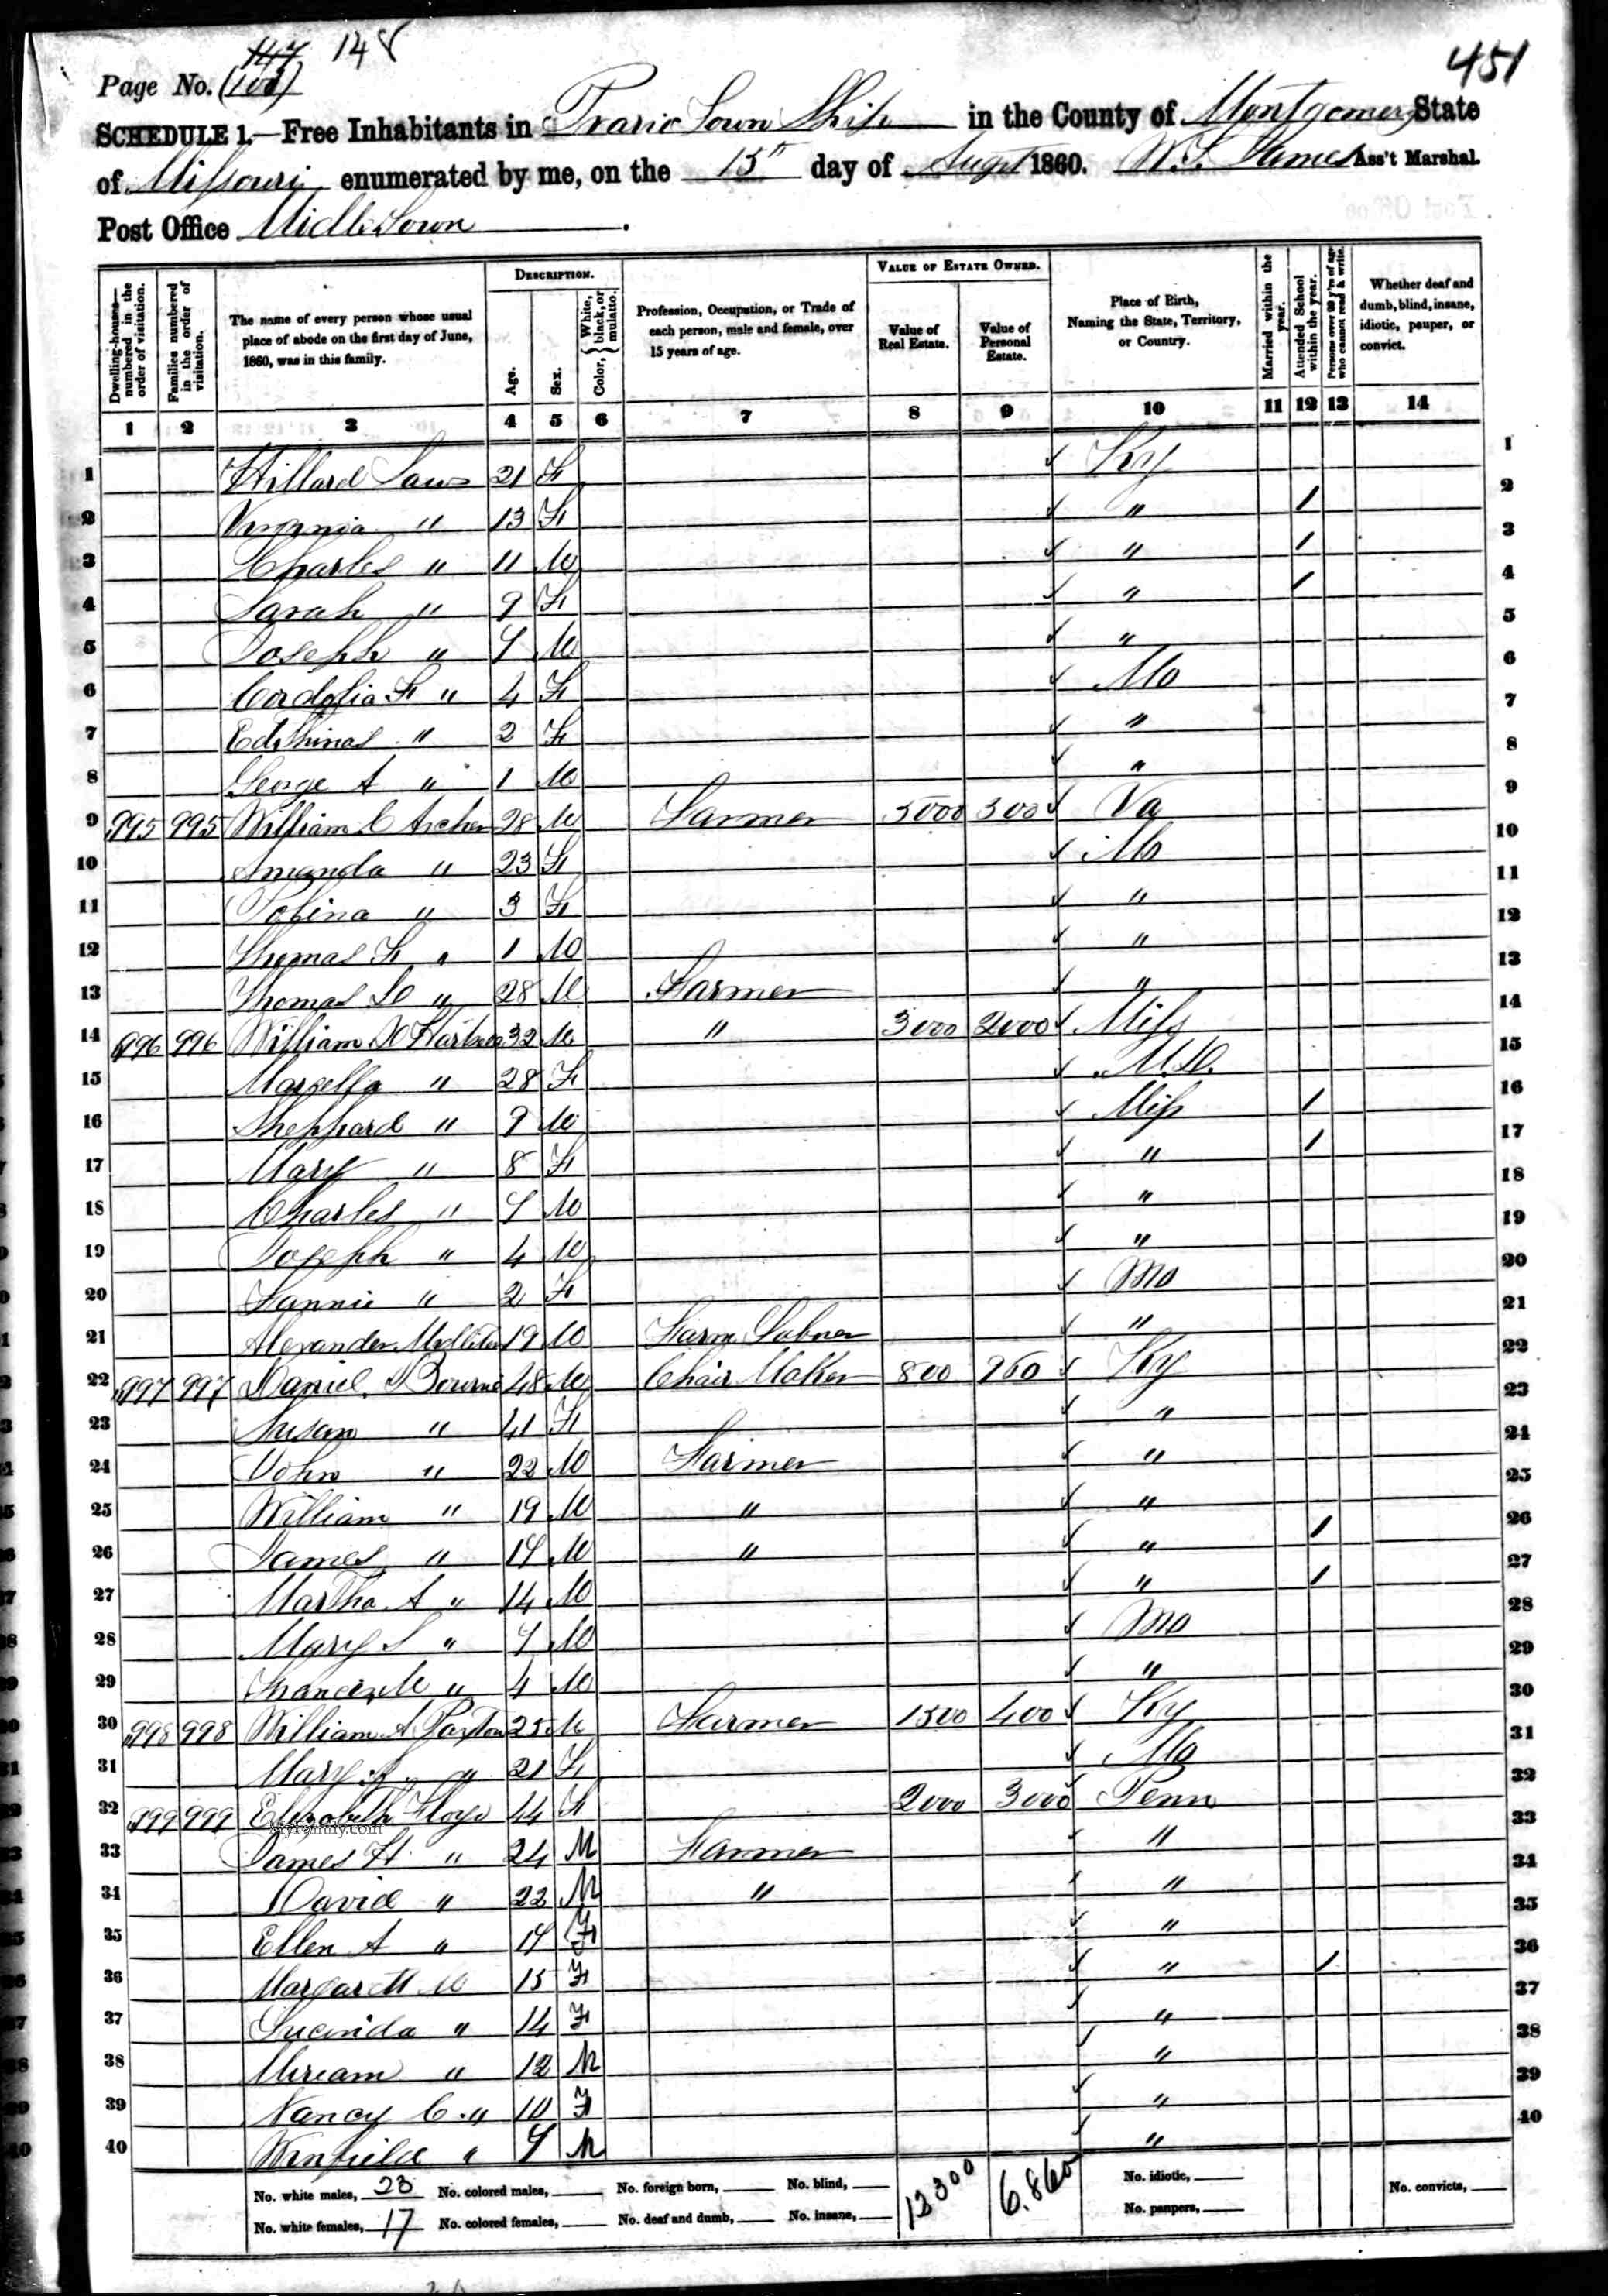 451
147 148
Page No. (102)
SCHEDULE 1.—Free Inhabitants in Prario Town Ship in the County of Montgomery State
of Missouri enumerated by me, on the 15th day of Augst 1860. W. S. James Ass't Marshal.
Post Office Midletown.
Dwelling-houses—numbered in the order of visitation.
Families numbered in the order of visitation.
The name of every person whose usual place of abode on the first day of June, 1860, was in this family.
DESCRIPTION.
Age.
Sex.
Color, { White, black, or mulatto.
Profession, Occupation, or Trade of each person, male and female, over 15 years of age.
VALUE OF ESTATE OWNED.
Value of Real Estate.
Value of Personal Estate.
Place of Birth, Naming the State, Territory, or Country.
Married within the year.
Attended School within the year.
Persons over 20 y'rs of age who cannot read & write.
Whether deaf and dumb, blind, insane, idiotic, pauper, or convict.
1 2 3 4 5 6 7 8 9 10 11 12 13 14
1 Hillard Laws 21 F Ky 1
2 Virginia " 13 F " / 2
3 Charles " 11 M " / 3
4 Sarah " 9 F " / 4
5 Joseph " 7 M " 5
6 Cordelia F " 4 F Mo 6
7 " 2 F " 7
8 George A " 1 M " 8
9 995 995 William C Archer 28 M Farmer 5000 300 Va 9
10 Amanda " 23 F Mo 10
11 " 3 F " 11
12 Thomas F " 1 M " 12
13 Thomas D " 28 M Farmer " 13
14 996 996 William D 32 M " 3000 2000 Miss 14
15 " 28 F M.D. 15
16 Sheppard " 9 M Miss / 16
17 Mary " 8 F " / 17
18 Charles " 7 M " 18
19 Joseph " 4 M " 19
20 Fannie " 2 F Mo 20
21 Alexander 19 M Farm Labrer " 21
22 997 997 Daniel Bourne 48 M Chair Maker 800 260 Ky 22
23 Susan " 41 F " 23
24 John " 22 M Farmer " 24
25 William " 19 M " " 25
26 James " 17 M " " / 26
27 Martha A " 14 M " / 27
28 Mary S " 7 M Mo 28
29 Francis M " 4 M " 29
30 998 998 William A Paxton 25 M Farmer 1500 400 Ky 30
31 Mary A " 21 F Mo 31
32 999 999 Elizabeth Floyd 44 F 2000 3000 Penn 32
MyFamily.com
33 James H " 24 M Farmer " 33
34 David " 22 M " " 34
35 Ellen A " 17 F " 35
36 Margarett M 15 F " / 36
37 Lucinda " 14 F " 37
38 Miream " 12 M " 38
39 Nancy C " 10 F " 39
40 Winfield " 7 M " 40
No. white males, 23 No. colored males, No. foreign born, No. blind, 12300 6.860 No. idiotic, No. convicts,
No. white females, 17 No. colored females, No. deaf and dumb, No. insane, No. paupers,